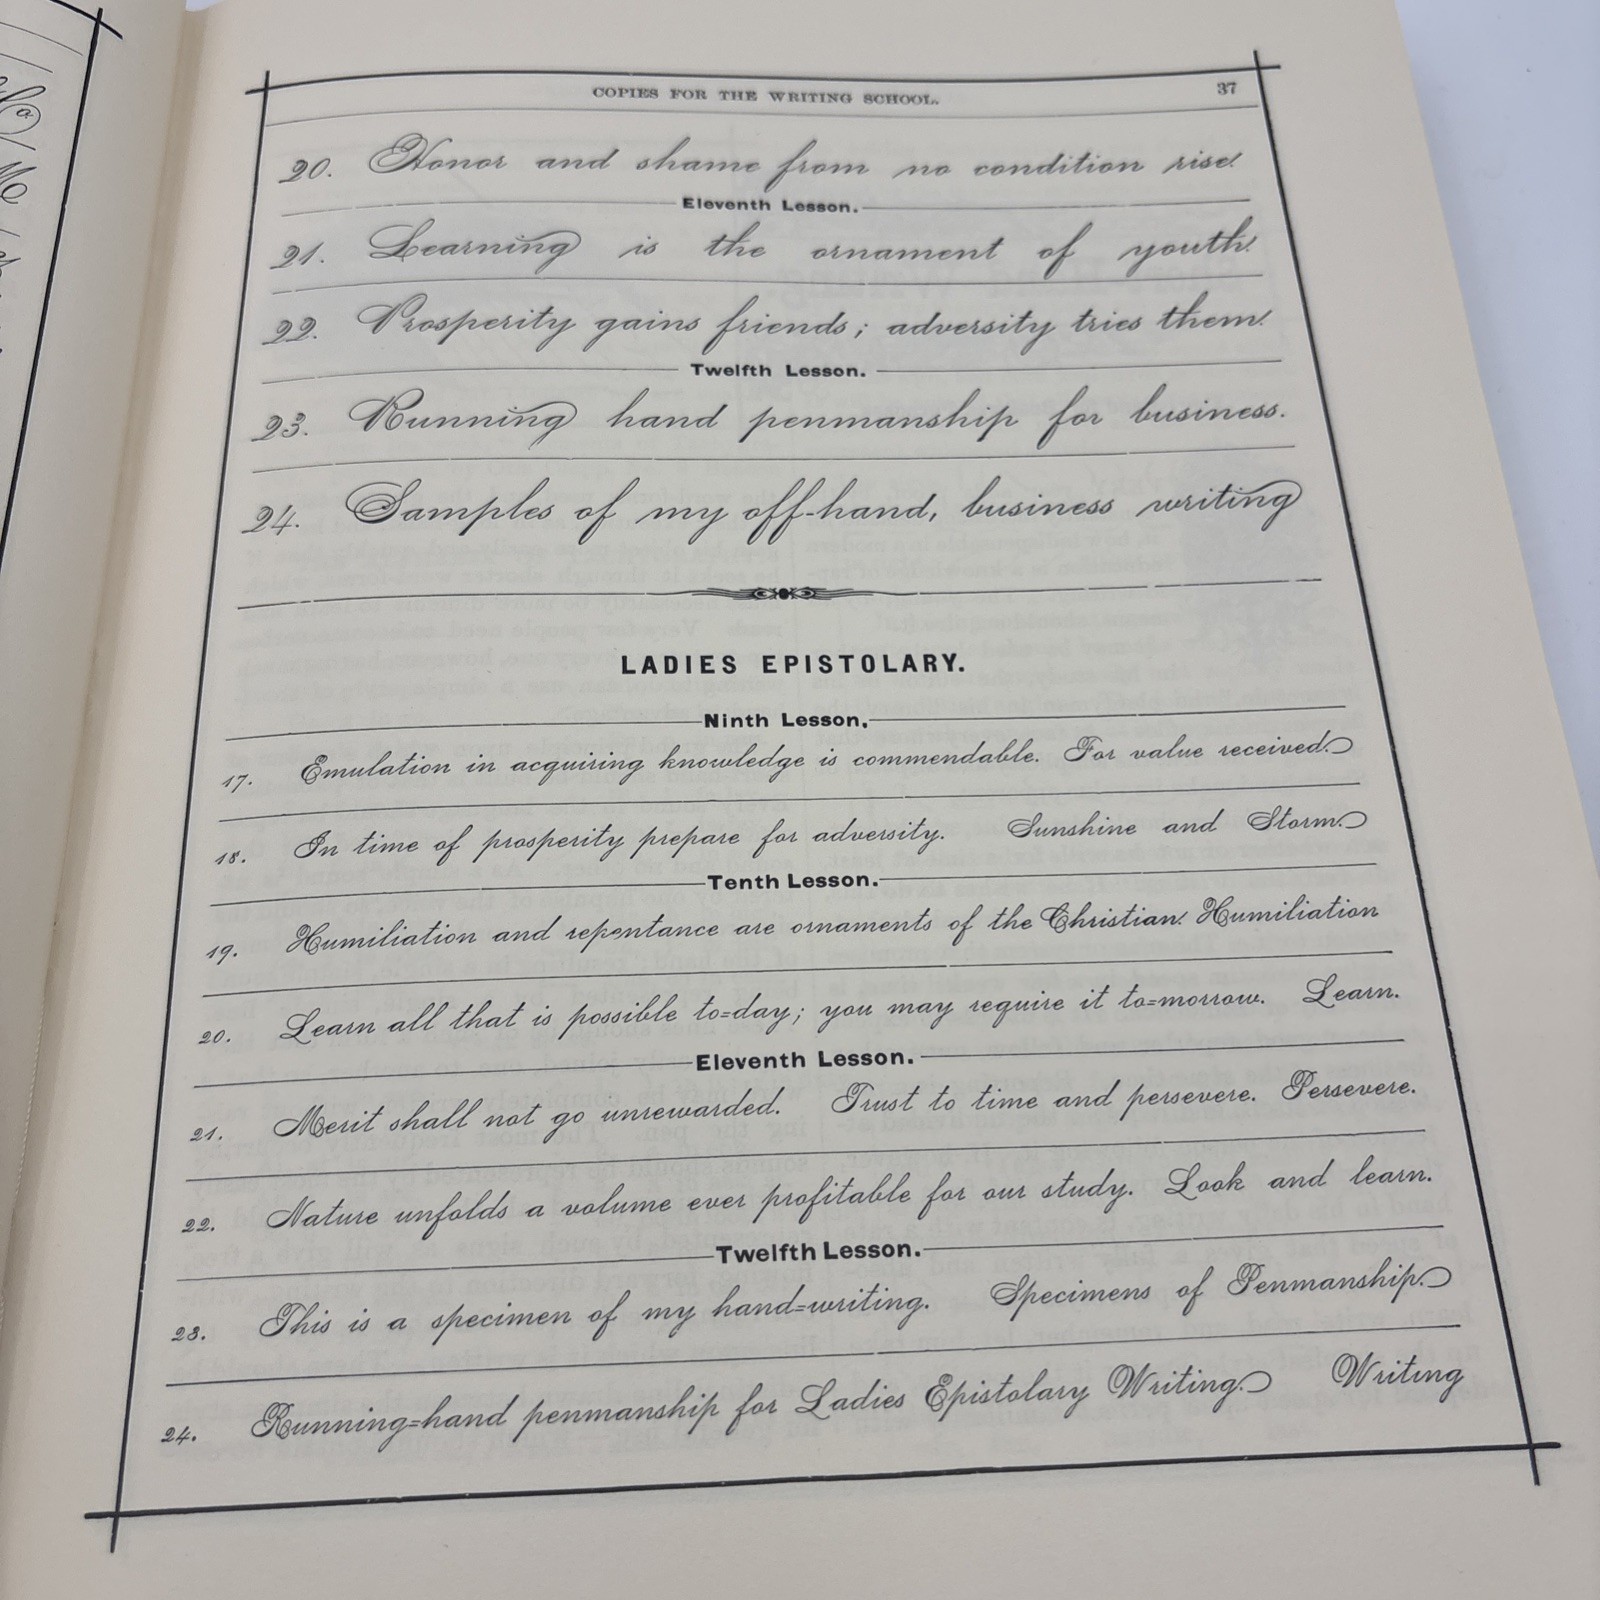 COPIES FOR THE WRITING SCHOOL. 37
20. Honor and shame from no condition rise.
Eleventh Lesson.
21. Learning is the ornament of youth.
22. Prosperity gains friends; adversity tries them.
Twelfth Lesson.
23. Running hand penmanship for business.
24. Samples of my off-hand, business writing
LADIES EPISTOLARY.
Ninth Lesson.
17. Emulation in acquiring knowledge is commendable. For value received.
18. In time of prosperity prepare for adversity. Sunshine and Storm.
Tenth Lesson.
19. Humiliation and repentance are ornaments of the Christian. Humiliation
20. Learn all that is possible to=day; you may require it to=morrow. Learn.
Eleventh Lesson.
21. Merit shall not go unrewarded. Trust to time and persevere. Persevere.
22. Nature unfolds a volume ever profitable for our study. Look and learn.
Twelfth Lesson.
23. This is a specimen of my hand=writing. Specimens of Penmanship.
24. Running=hand penmanship for Ladies Epistolary Writing. Writing